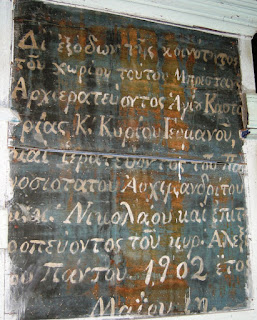 Δι ἐξόδων τῆς κοινότητος
τοῦ χωρίου τούτου
Ἀρχιερατεύοντος Ἁγίου Καστο
ρίας Κ. Κυρίου Γερμανοῦ,
καὶ ἱερατεύοντος τοῦ Πα
νοσιοτάτου Ἀρχιμανδρίτου
Νικολάου καὶ ἐπιτ
ροπεύοντος τοῦ κυρ. Ἀλεξ
Πάντου. 1902 ἔτο
Μαΐου